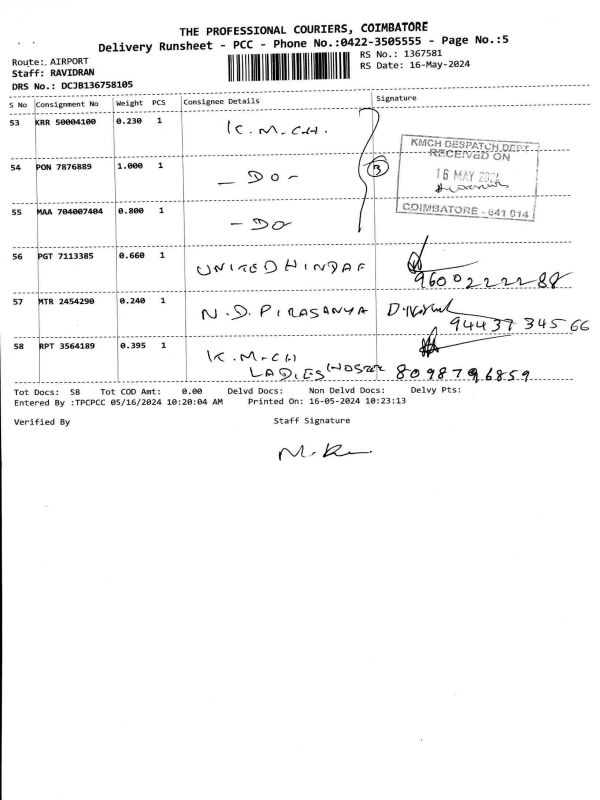 THE PROFESSIONAL COURIERS, COIMBATORE
Delivery Runsheet - PCC - Phone No.:0422-3505555 - Page No.:5
Route: AIRPORT RS No.: 1367581
Staff: RAVIDRAN RS Date: 16-May-2024
DRS No.: DCJB136758105
S No Consignment No Weight PCS Consignee Details Signature
53 KRR 50004100 0.230 1 K.M.CH.
KMCH DESPATCH DEPT
RECEIVED ON
54 PON 7876889 1.000 1 - DO - 3
16 MAY 2024
55 MAA 704007404 0.800 1 - DO
COIMBATORE - 641 014
56 PGT 7113385 0.660 1 UNITED HINDAF
9600222288
57 MTR 2454290 0.240 1 N.D. PIRASANYA
94437 345 66
58 RPT 3564189 0.395 1 K.M-CH
LADIES HOSTEL 8098796859
Tot Docs: 58 Tot COD Amt: 0.00 Delvd Docs: Non Delvd Docs: Delvy Pts:
Entered By :TPCPCC 05/16/2024 10:20:04 AM Printed On: 16-05-2024 10:23:13
Verified By Staff Signature